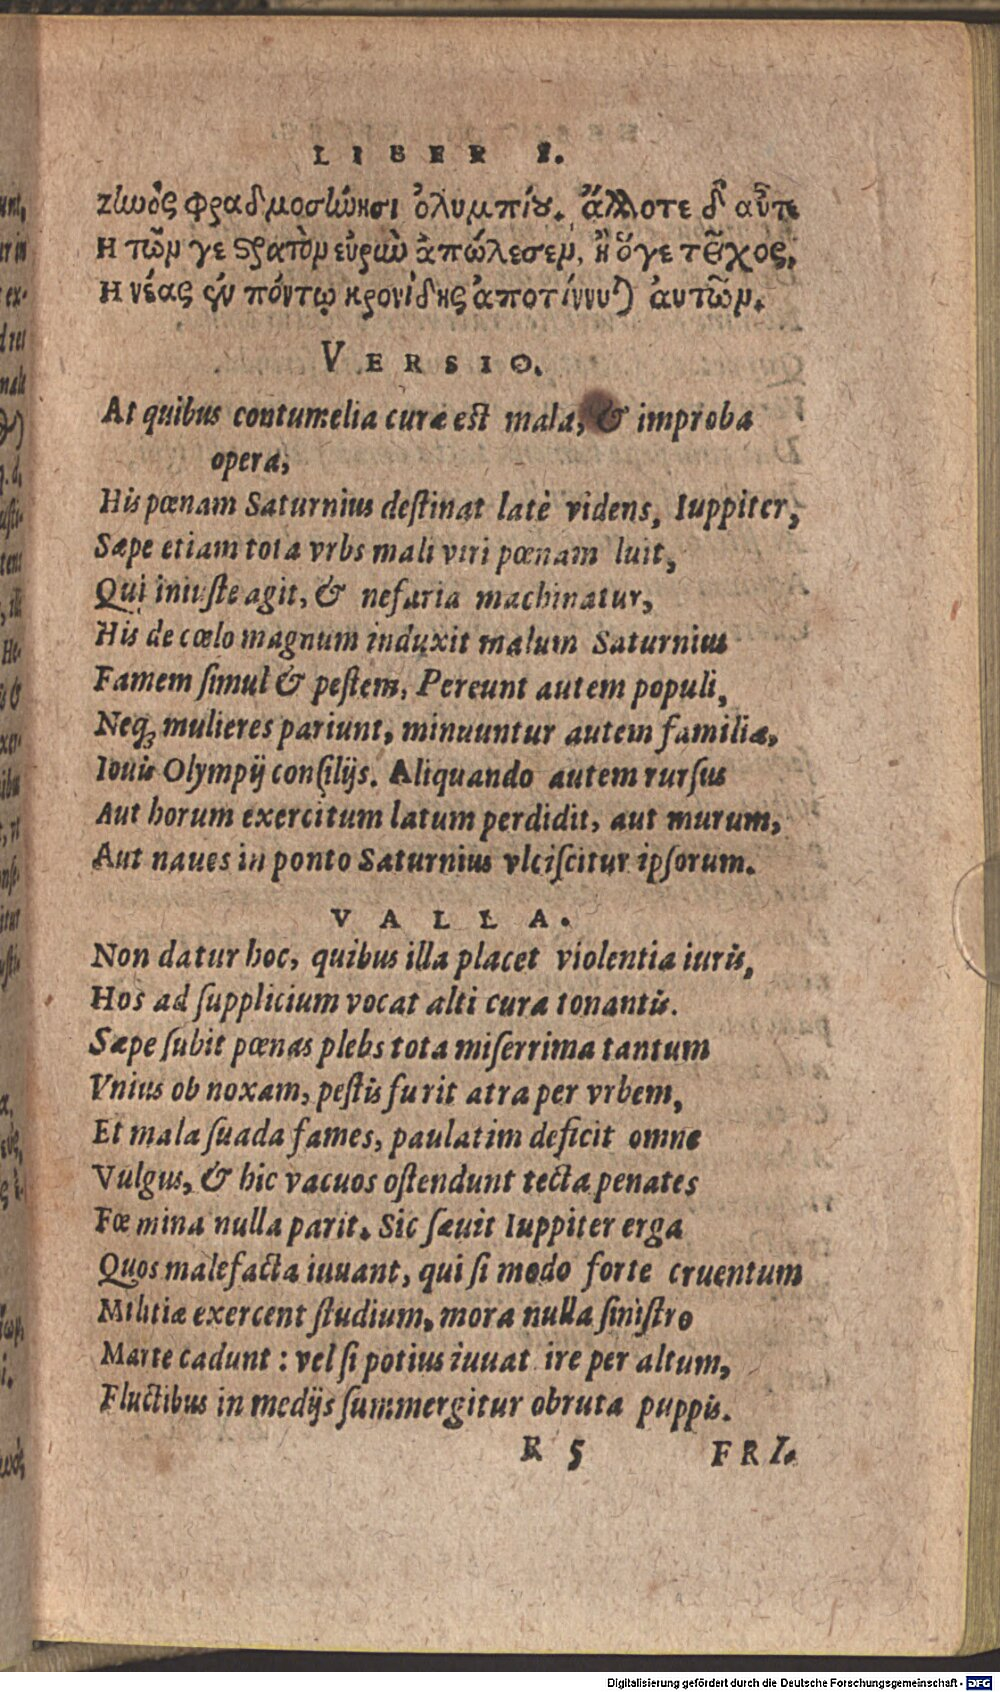 LIBER I.
ζηνὸς φραδμοσύνῃσι ὀλυμπίου. ἄλλοτε δ' αὖτε
Η τῶν γε στρατὸν εὐρὺν ἀπώλεσεν, ἢ ὅγε τεῖχος,
Η νέας ἐν πόντῳ κρονίδης ἀποτίννυται αὐτῶν.
VERSIO.
At quibus contumelia curæ est mala, & improba
opera,
His pœnam Saturnius destinat latè videns, Iuppiter,
Sæpe etiam tota vrbs mali viri pœnam luit,
Qui iniuste agit, & nefaria machinatur,
His de cœlo magnum induxit malum Saturnius
Famem simul & pestem, Pereunt autem populi,
Neq; mulieres pariunt, minuuntur autem familiæ,
Iouis Olympij consilijs. Aliquando autem rursus
Aut horum exercitum latum perdidit, aut murum,
Aut naues in ponto Saturnius vlciscitur ipsorum.
VALLA.
Non datur hoc, quibus illa placet violentia iuris,
Hos ad supplicium vocat alti cura tonantis.
Sæpe subit pœnas plebs tota miserrima tantum
Vnius ob noxam, pestis furit atra per vrbem,
Et mala suada fames, paulatim deficit omne
Vulgus, & hic vacuos ostendunt tecta penates
Fœmina nulla parit. Sic sæuit Iuppiter erga
Quos malefacta iuuant, qui si modo forte cruentum
Militiæ exercent studium, mora nulla sinistro
Marte cadunt: vel si potius iuuat ire per altum,
Fluctibus in medijs summergitur obruta puppis.
R 5 FRI.
Digitalisierung gefördert durch die Deutsche Forschungsgemeinschaft - DFG